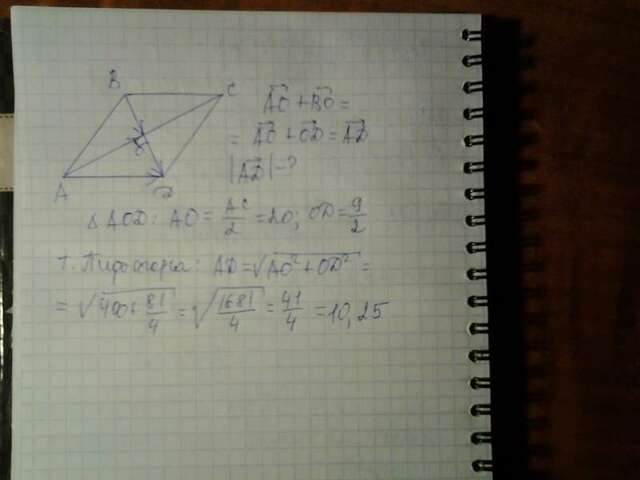 B C
O
A D
AO⃗ + BO⃗ =
= AO⃗ + OD⃗ = AD⃗
|AD⃗| - ?
△ AOD: AO = AC/2 = 20; OD = 9/2
т. Пифагора: AD = √(AO² + OD²) =
= √(400 + 81/4) = √(1681/4) = 41/4 = 10,25